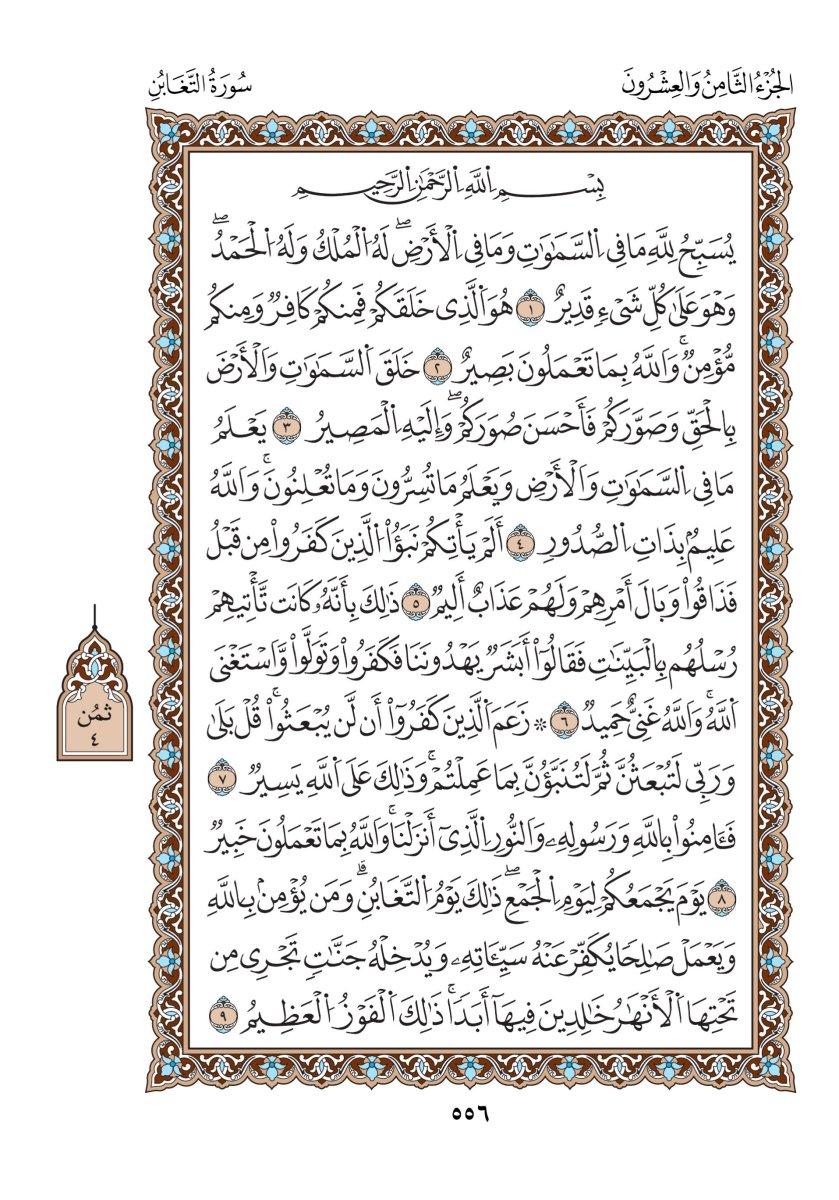 الجُزْءُ الثَّامِنُ وَالعِشْرُونَ
سُورَةُ التَّغَابُنِ
بِسْمِ اِ۬للَّهِ اِ۬لرَّحْمَٰنِ اِ۬لرَّحِيمِ
يُسَبِّحُ لِلهِ مَا فِى اِ۬لسَّمَٰوَٰتِ وَمَا فِى اِ۬لْأَرْضِۖ لَهُ اُ۬لْمُلْكُ وَلَهُ اُ۬لْحَمْدُۖ
وَهْوَ عَلَىٰ كُلِّ شَىْءٖ قَدِيرٌ ١ هُوَ اَ۬لَّذِى خَلَقَكُمْ فَمِنكُمْ كَافِرٞ وَمِنكُم
مُّؤْمِنٞۚ وَاللَّهُ بِمَا تَعْمَلُونَ بَصِيرٌ ٢ خَلَقَ اَ۬لسَّمَٰوَٰتِ وَالْأَرْضَ
بِالْحَقِّ وَصَوَّرَكُمْ فَأَحْسَنَ صُوَرَكُمْۖ وَإِلَيْهِ اِ۬لْمَصِيرُ ٣ يَعْلَمُ
مَا فِى اِ۬لسَّمَٰوَٰتِ وَالْأَرْضِ وَيَعْلَمُ مَا تُسِرُّونَ وَمَا تُعْلِنُونَۚ وَاللَّهُ
عَلِيمُۢ بِذَاتِ اِ۬لصُّدُورِ ٤ أَلَمْ يَأْتِكُمْ نَبَؤُاْ اُ۬لَّذِينَ كَفَرُواْ مِن قَبْلُ
فَذَاقُواْ وَبَالَ أَمْرِهِمْ وَلَهُمْ عَذَابٌ أَلِيمٌ ٥ ذَٰلِكَ بِأَنَّهُۥ كَانَت تَّأْتِيهِمْ
رُسْلُهُم بِالْبَيِّنَٰتِ فَقَالُوٓاْ أَبَشَرٞ يَهْدُونَنَا فَكَفَرُواْ وَتَوَلَّواْۖ وَّاسْتَغْنَى
اَ۬للَّهُۚ وَاللَّهُ غَنِىٌّ حَمِيدٌ ٦ ۞ زَعَمَ اَ۬لَّذِينَ كَفَرُوٓاْ أَن لَّن يُبْعَثُواْۚ قُلْ بَلَىٰ
وَرَبِّى لَتُبْعَثُنَّ ثُمَّ لَتُنَبَّؤُنَّ بِمَا عَمِلْتُمْۚ وَذَٰلِكَ عَلَى اَ۬للَّهِ يَسِيرٌ ٧
فَـَٔامِنُواْ بِاللَّهِ وَرَسُولِهِۦ وَالنُّورِ اِ۬لَّذِىٓ أَنزَلْنَاۚ وَاللَّهُ بِمَا تَعْمَلُونَ خَبِيرٌ
٨ يَوْمَ يَجْمَعُكُمْ لِيَوْمِ اِ۬لْجَمْعِۖ ذَٰلِكَ يَوْمُ اُ۬لتَّغَابُنِۗ وَمَن يُؤْمِنۢ بِاللَّهِ
وَيَعْمَلْ صَٰلِحٗا يُكَفِّرْ عَنْهُ سَيِّـَٔاتِهِۦ وَيُدْخِلْهُ جَنَّٰتٖ تَجْرِى مِن
تَحْتِهَا اَ۬لْأَنْهَٰرُ خَٰلِدِينَ فِيهَآ أَبَدٗاۚ ذَٰلِكَ اَ۬لْفَوْزُ اُ۬لْعَظِيمُ ٩
ثُمُن
٤
٥٥٦